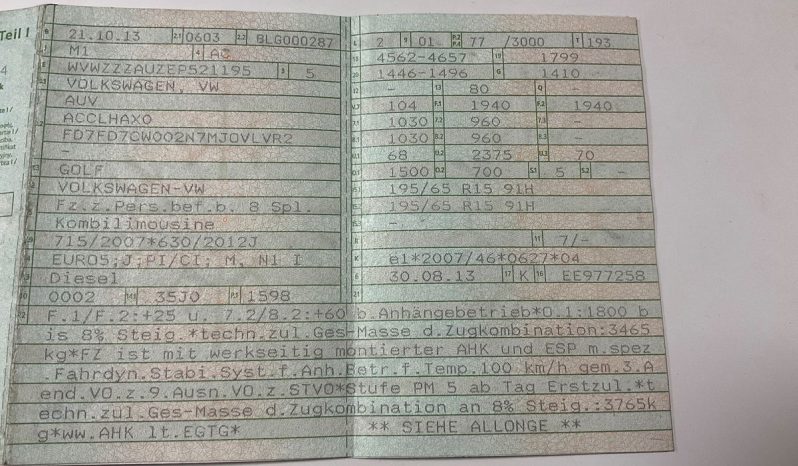 Teil I
21.10.13 2.1 0603 2.2 BLG000287
M1 4 AC
WVWZZZAUZEP521195 3 5
VOLKSWAGEN, VW
AUV
ACCLHAX0
FD7FD7CW002N7MJOVLVR2
-
GOLF
VOLKSWAGEN-VW
Fz.z.Pers.bef.b. 8 Spl.
Kombilimousine
715/2007*630/2012J
EURO5;J;PI/CI; M, N1 I
Diesel
0002 35J0 P.1 1598
2 9 01 P.2 P.4 77 /3000 T 193
4562-4657 19 1799
1446-1496 G 1410
- 13 80 Q -
104 F.1 1940 F.2 1940
1030 7.2 960 7.3 -
1030 8.2 960 8.3 -
68 U.2 2375 U.3 70
1500 O.2 700 S.1 5 S.2 -
195/65 R15 91H
195/65 R15 91H
-
11 7/-
K e1*2007/46*0627*04
6 30.08.13 17 K 16 EE977258
21
22 F.1/F.2:+25 u. 7.2/8.2:+60 b.Anhängebetrieb*O.1:1800 b
is 8% Steig.*techn.zul.Ges-Masse d.Zugkombination:3465
kg*FZ ist mit werkseitig montierter AHK und ESP m.spez
.Fahrdyn.Stabi.Syst.f.Anh.Betr.f.Temp.100 km/h gem.3.A
end.VO.z.9.Ausn.VO.z.STVO*Stufe PM 5 ab Tag Erstzul.*t
echn.zul.Ges-Masse d.Zugkombination an 8% Steig.:3765k
g*ww.AHK lt.EGTG* ** SIEHE ALLONGE **